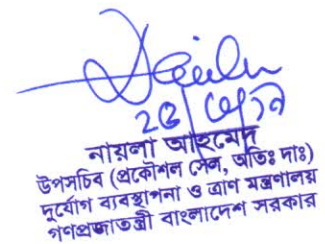 নায়লা আহমেদ
উপসচিব (প্রকৌশল সেল, অতিঃ দাঃ)
দুর্যোগ ব্যবস্থাপনা ও ত্রাণ মন্ত্রণালয়
গণপ্রজাতন্ত্রী বাংলাদেশ সরকার